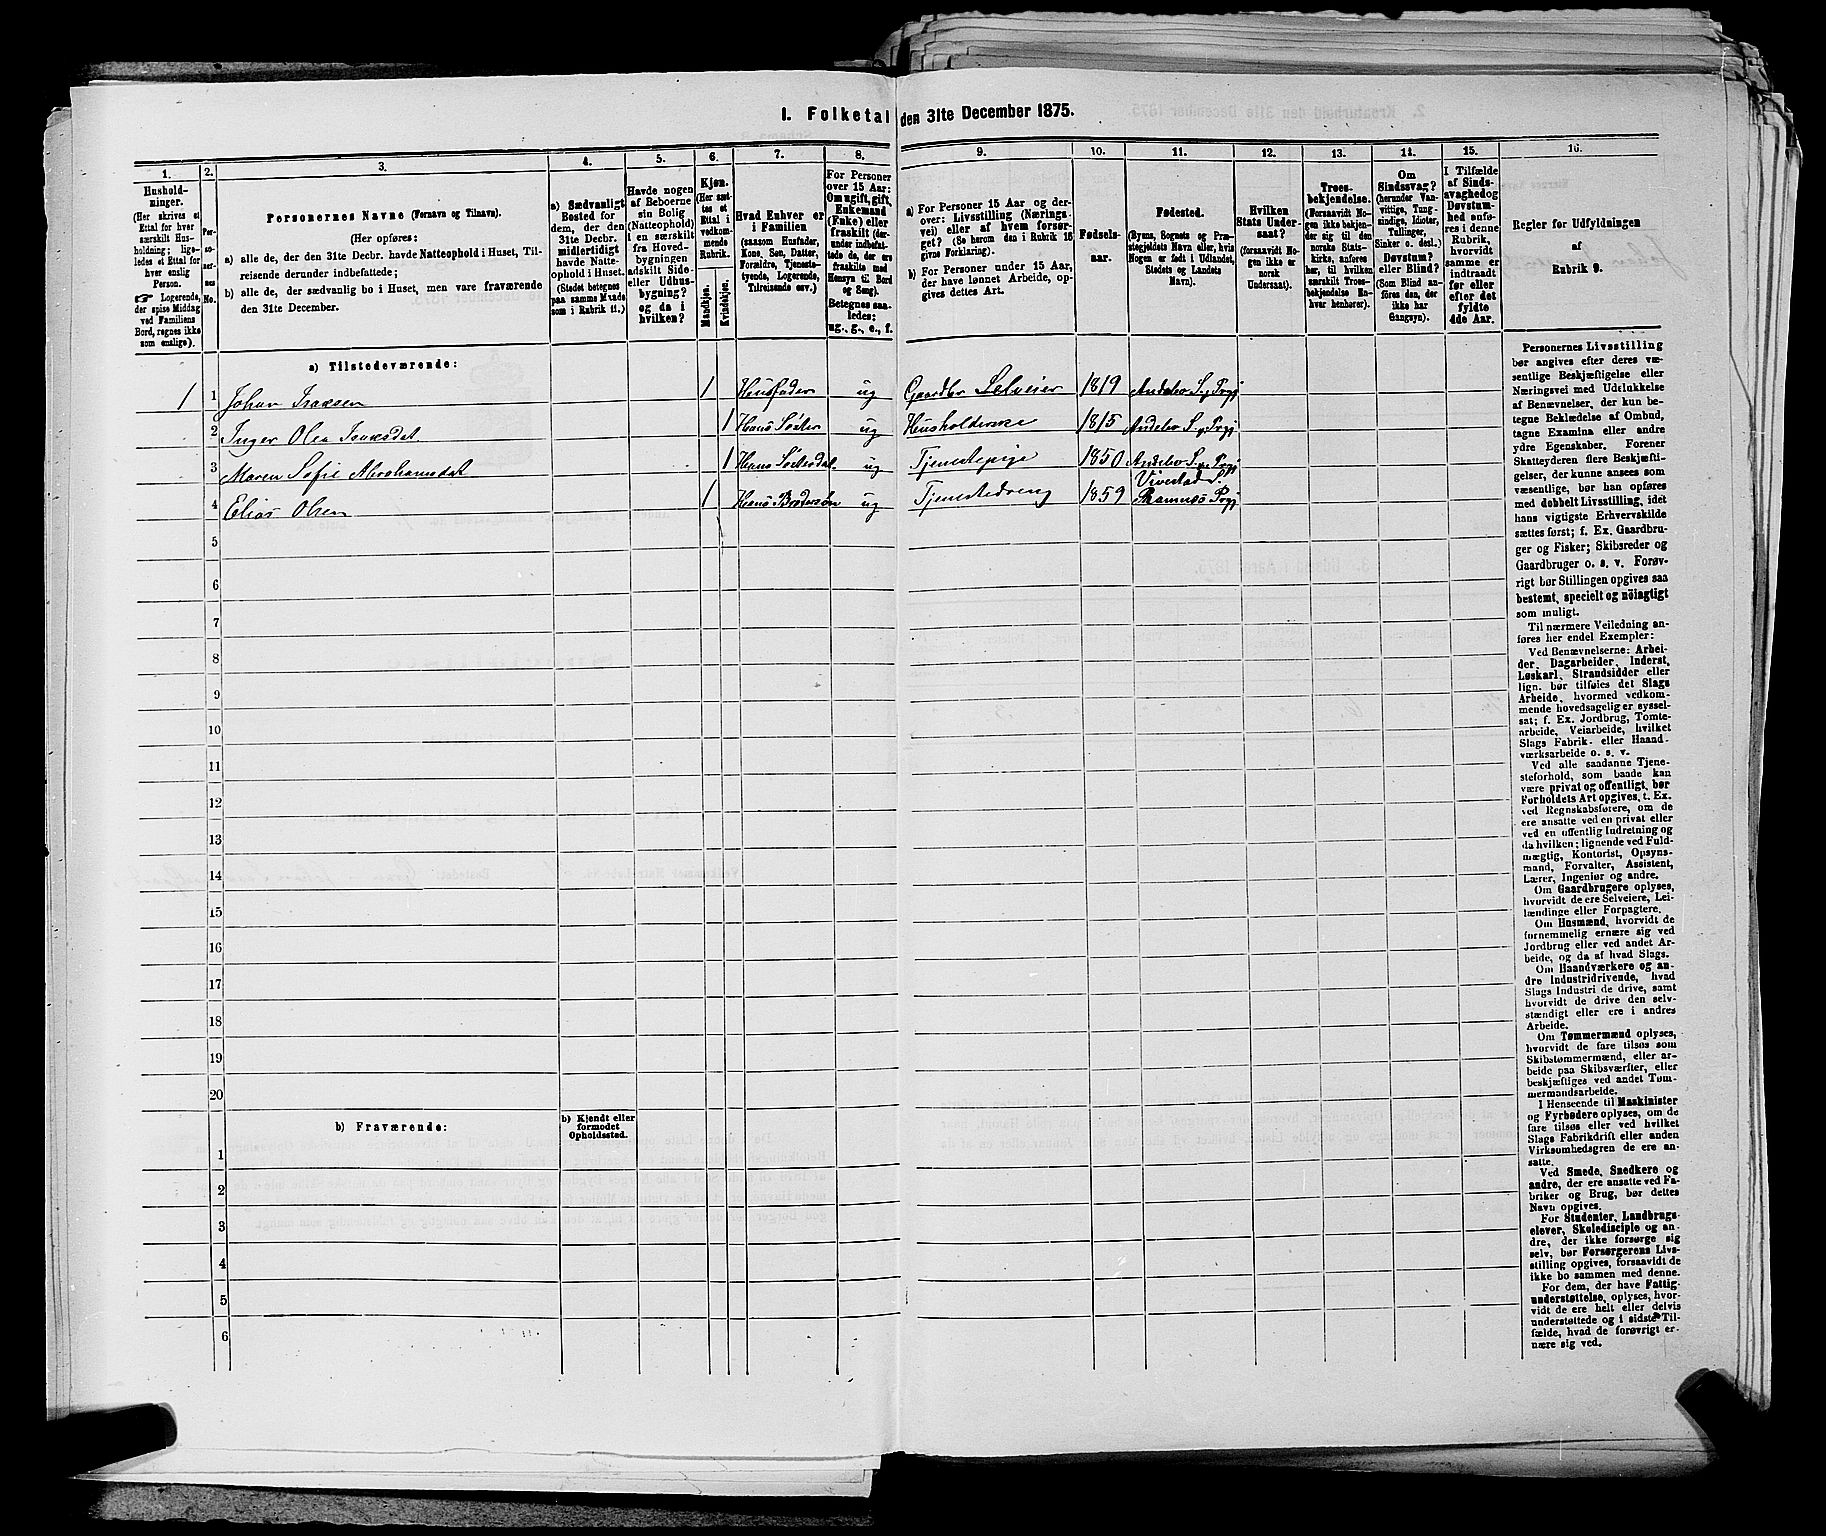 1. Folketal den 31te December 1875.
1.
2.
3.
4.
5.
6.
7.
8.
9.
10.
11.
12.
13.
14.
15.
16.
Hushold-
ninger.
(Her skrives et
Ettal for hver
særskilt Hus-
holdning; lige-
ledes et Ettal for
hver enslig
Person.
☞ Logerende,
der spise Middag
ved Familiens
Bord, regnes ikke
som enslige).
Per-
so-
ner-
nes
No.
Personernes Navne (Fornavn og Tilnavn).
(Her opføres:
a) alle de, der den 31te Decbr. havde Natteophold i Huset, Til-
reisende derunder indbefattede;
b) alle de, der sædvanlig bo i Huset, men vare fraværende
den 31te December.
a) Sædvanligt
Bosted for
dem, der den
31te Decbr.
midlertidigt
havde Natte-
ophold i Huset.
(Stedet betegnes
paa samme Maade
som i Rubrik 11.)
Havde nogen
af Beboerne
sin Bolig
(Natteophold)
i en særskilt
fra Hoved-
bygningen
adskilt Side-
eller Udhus-
bygning?
og da i
hvilken?
Kjøn.
(Her sæt-
tes et
Ettal i
vedkom-
mende
Rubrik.
Mandkjøn.
Kvindekjøn.
Hvad Enhver er
i Familien
(saasom Husfader,
Kone, Søn, Datter,
Forældre, Tjeneste-
tyende, Logerende,
Tilreisende osv.)
For Personer
over 15 Aar:
Om ugift, gift,
Enkemand
(Enke) eller
fraskilt (der-
under indbefat-
tede de, der ere
fraskilte med
Hensyn til Bord
og Seng).
Betegnes saa-
ledes:
ug., g., e., f.
a) For Personer 15 Aar og der-
over: Livsstilling (Nærings-
vei) eller af hvem forsør-
get? (Se herom den i Rubrik 16
givne Forklaring).
b) For Personer under 15 Aar,
der have lønnet Arbeide, op-
gives dettes Art.
Fødsels-
aar.
Fødested.
(Byens, Sognets og Præ-
stegjeldets Navn eller, hvis
Nogen er født i Udlandet,
Stedets og Landets
Navn).
Hvilken
Stats Under-
saat?
(forsaavidt No-
gen ikke er
norsk
Undersaat).
Troes-
bekjendelse.
(Forsaavidt No-
gen ikke bekjen-
der sig til den
norske Stats-
kirke, anføres
her, til hvilken
særskilt Troes-
bekjendelse En-
hver henhører).
Om
Sindssvag?
(herunder Van-
vittige, Tung-
sindige, Idioter,
Tullinger,
Sinker o. desl.)
Døvstum?
eller Blind?
(Som Blind an-
føres den, der
ikke har
Gangsyn).
I Tilfælde
af Sinds-
svaghed og
Døvstum-
hed anfø-
res i denne
Rubrik,
hvorvidt
samme er
indtraadt
før eller
efter det
fyldte
4de Aar.
Regler for Udfyldningen
af
Rubrik 9.
a) Tilstedeværende:
1 1 Johan Isaksen 1 Husfader ug Gaardbr Selveier 1819 Andebu S. og Prgj
2 Inger Olea Isaksdat 1 Hans Søster ug Husholderske 1815 Andebu S. og Prgj
3 Maren Sofie Abrahamsdat 1 Hans Søsterdat. ug Tjenestepige 1850 Andebu S. og Prgj
4 Elias Olsen 1 Hans Brodersøn ug Tjenestedreng 1859 Vivestad S. Ramnæs Prgj
5
6
7
8
9
10
11
12
13
14
15
16
17
18
19
20
b) Fraværende:
b) Kjendt eller
formodet
Opholdssted.
1
2
3
4
5
6
Personernes Livsstilling
bør angives efter deres væ-
sentlige Beskjæftigelse eller
Næringsvei med Udelukkelse
af Benævnelser, der kun be-
tegne Beklædelse af Ombud,
tagne Examina eller andre
ydre Egenskaber. Forener
Skatteyderen flere Beskjæfti-
gelser, der kunne ansees som
væsentlige, bør han opføres
med dobbelt Livsstilling, idet
hans vigtigste Erhvervskilde
sættes først; f. Ex. Gaardbru-
ger og Fisker; Skibsreder og
Gaardbruger o. s. v. Forøv-
rigt bør Stillingen opgives saa
bestemt, specielt og nöiagtigt
som muligt.
Til nærmere Veiledning an-
føres her endel Exempler:
Ved Benævnelserne: Arbei-
der, Dagarbeider, Inderst,
Løskarl, Strandsidder eller
lign. bør tilføies det Slags
Arbeide, hvormed vedkom-
mende hovedsagelig er syssel-
sat; f. Ex. Jordbrug, Tomte-
arbeide, Veiarbeide, hvilket
Slags Fabrik- eller Haand-
værksarbeide o. s. v.
Ved alle saadanne Tjene-
steforhold, som baade kan
være privat og offentligt, bør
Forholdets Art opgives, t. Ex.
ved Regnskabsførere, om de
ere ansatte ved en privat eller
ved en offentlig Indretning og
da hvilken; lignende ved Fuld-
mægtig, Kontorist, Opsyns-
mand, Forvalter, Assistent,
Lærer, Ingeniør og andre.
Om Gaardbrugere oplyses,
hvorvidt de ere Selveiere, Lei-
lændinge eller Forpagtere.
Om Husmænd, hvorvidt de
fornemmelig ernære sig ved
Jordbrug eller ved andet Ar-
beide, og da af hvad Slags.
Om Haandværkere og an-
dre Industridrivende, hvad
Slags Industri de drive, samt
hvorvidt de drive den selv-
stændigt eller ere i andres
Arbeide.
Om Tømmermænd oplyses,
hvorvidt de fare tilsøs som
Skibstømmermænd, eller ar-
beide paa Skibsværfter, eller
beskjæftiges ved andet Tøm-
mermandsarbeide.
I Henseende til Maskinister
og Fyrbødere oplyses, om de
fare tilsøs eller ved hvilket
Slags Fabrikdrift eller anden
Virksomhedsgren de ere an-
satte.
Ved Smede, Snedkere og
andre, der ere ansatte ved Fa-
briker og Brug, bør dettes
Navn opgives.
For Studenter, Landbrugs-
elever, Skoledisciple og an-
dre, der ikke forsørge sig
selv, bør Forsørgerens Livs-
stilling opgives, forsaavidt de
ikke bo sammen med denne.
For dem, der have Fattig-
understøttelse, oplyses, hvor-
vidt de ere helt eller delvis
understøttede og i sidste Til-
fælde, hvad de forøvrigt er-
nære sig ved.